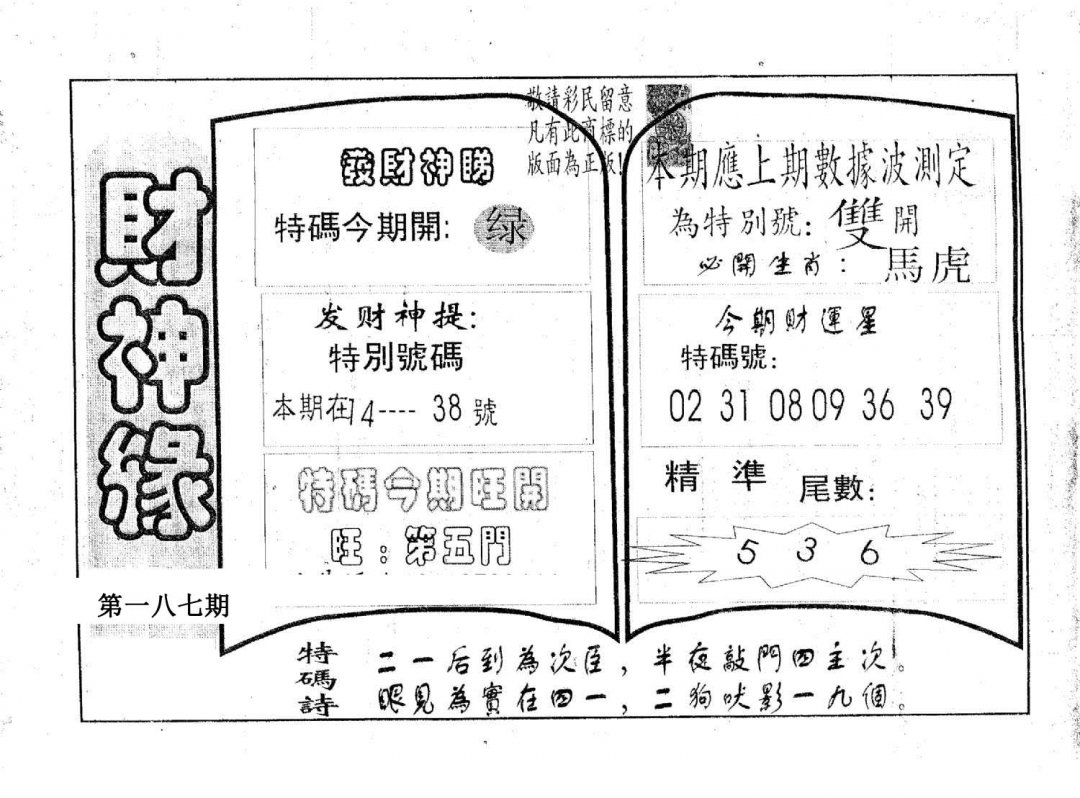 財神緣
第一八七期
敬請彩民留意
凡有此商標的
版面為正版!
發財神睇
特碼今期開: 绿
发财神提:
特別號碼
本期在14---- 38 號
特碼今期旺開
旺:第五門
本期應上期數據波測定
為特別號: 雙開
必開生肖: 馬虎
今期財運星
特碼號:
02 31 08 09 36 39
精準 尾數:
5 3 6
特碼詩
二一后到為次臣,半夜敲門四主次。
眼見為實在四一,二狗吠影一九個。